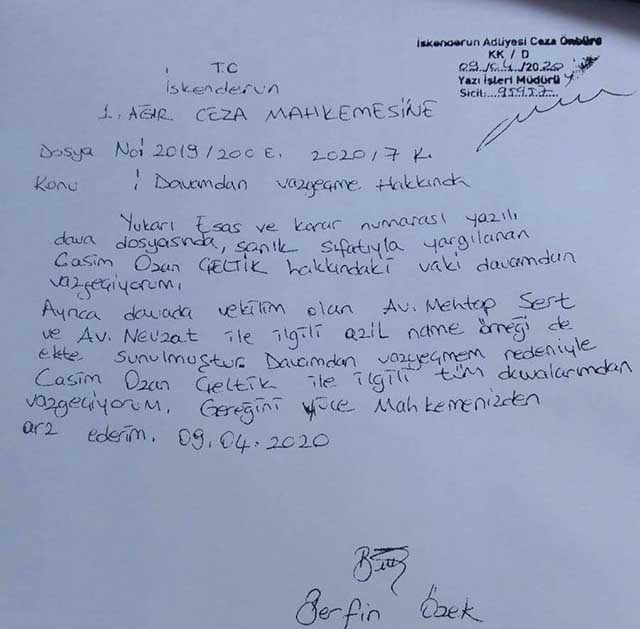 İskenderun Adliyesi Ceza Önbüro
KK / D
09/04/2020
Yazı İşleri Müdürü
Sicil:...95957..
T.C
İskenderun
1. AĞIR CEZA MAHKEMESİNE
Dosya No: 2019/200 E. 2020/7 K.
Konu : Davamdan vazgeçme Hakkında
Yukarı Esas ve karar numarası yazılı
dava dosyasında, sanık sıfatıyla yargılanan
Casim Ozan ÇELTİK hakkındaki vaki davamdan
vazgeçiyorum.
Ayrıca davada vekilim olan Av. Mehtap Sert
ve Av. Nevzat ile ilgili azil name örneği de
ekte sunulmuştur. Davamdan vazgeçmem nedeniyle
Casim Ozan Çeltik ile ilgili tüm davalarımdan
vazgeçiyorum. Gereğini yüce Mahkemenizden
arz ederim. 09.04.2020
Berfin Özek